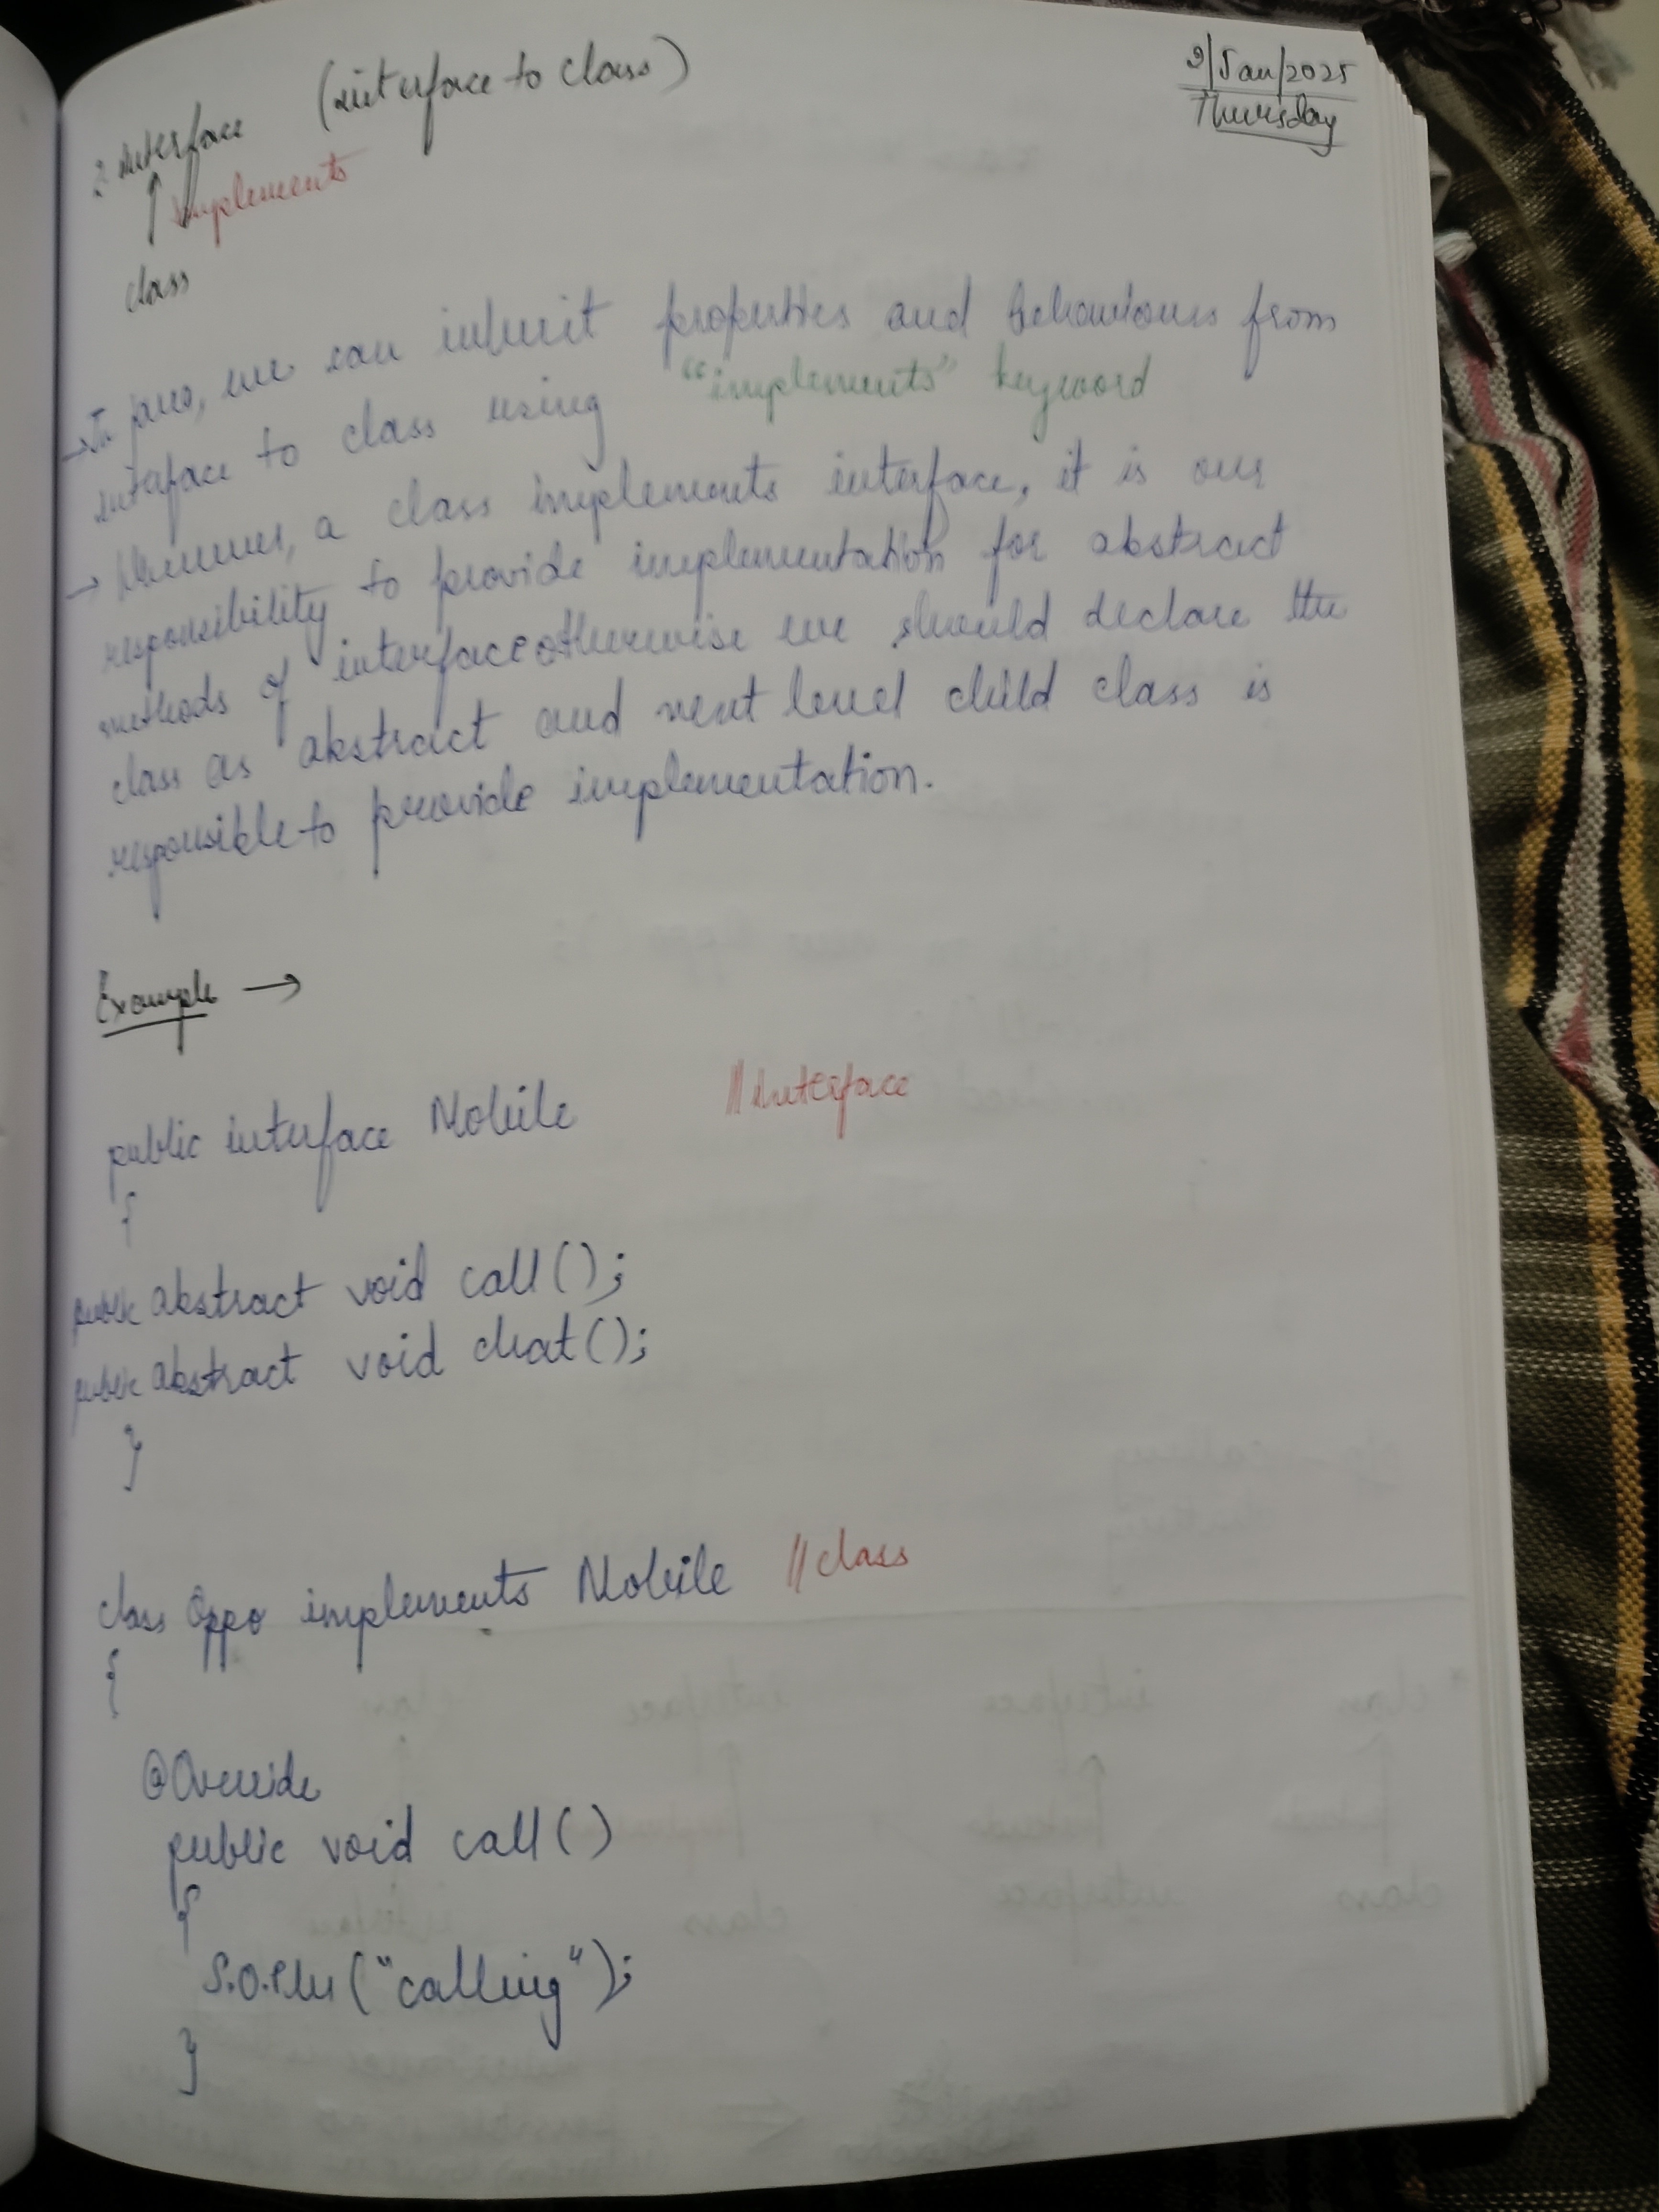 9/Jan/2025
Thursday
(interface to class)
2 interface
implements
class
→ In java, we can inherit properties and behaviours from
interface to class using "implements" keyword
→ Whenever, a class implements interface, it is our
responsibility to provide implementation for abstract
methods of interface otherwise we should declare the
class as abstract and next level child class is
responsible to provide implementation.
Example →
public interface Mobile //interface
{
public abstract void call();
public abstract void chat();
}
class Oppo implements Mobile //class
{
@Override
public void call()
{
S.O.Pln("calling");
}